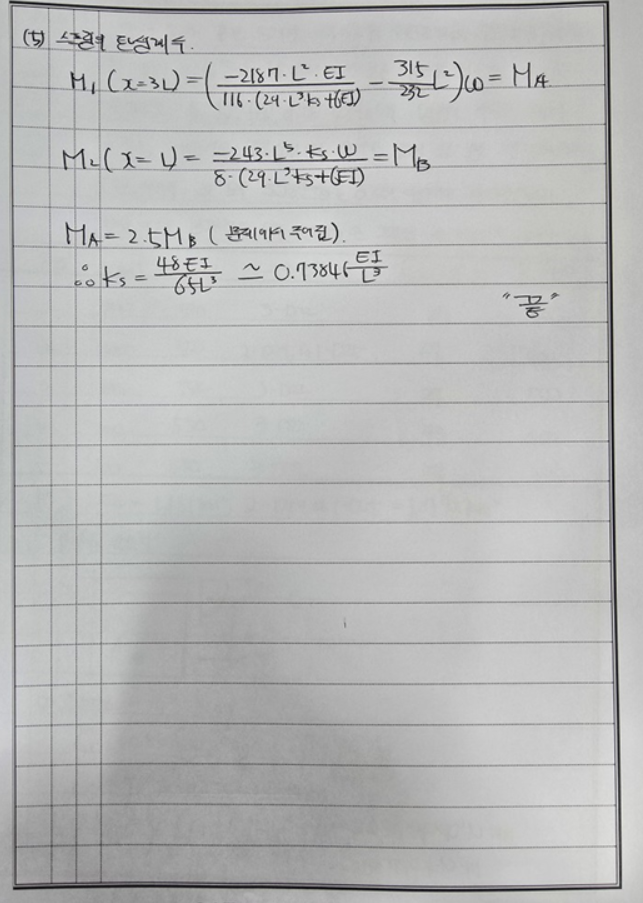 (5) 스프링의 탄성계수.
M₁ (x=3L) = ( (-2187·L²·EI)/(116·(29·L³ks+6EI)) - (315/232)L² )ω = MA
M₂ (x=L) = (-243·L⁵·ks·ω)/(8·(29·L³ks+6EI)) = MB
MA = 2.5MB (문제에서 주어짐).
∴ ks = 48EI/65L³ ≃ 0.73846 EI/L³
"끝"